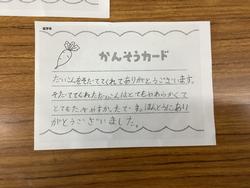 かんそうカード
だいこんをそだててくれてありがとうございます。
そだててくれただいこんはとてもやわらかくて
とてもたべやすかったです。ほんとうにあり
がとうございました。